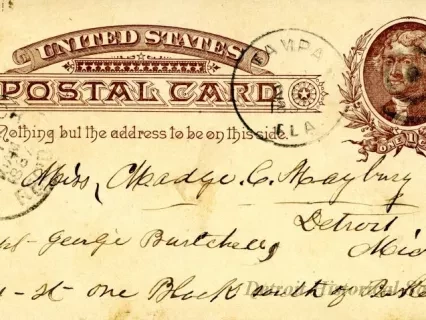 UNITED STATES
POSTAL CARD
Nothing but the address to be on this side.
TAMPA
FLA
ONE
Miss, Madge. C. Maybury
Detroit
Mic
George Burtchell,
st one Block south of
Detroit Historical